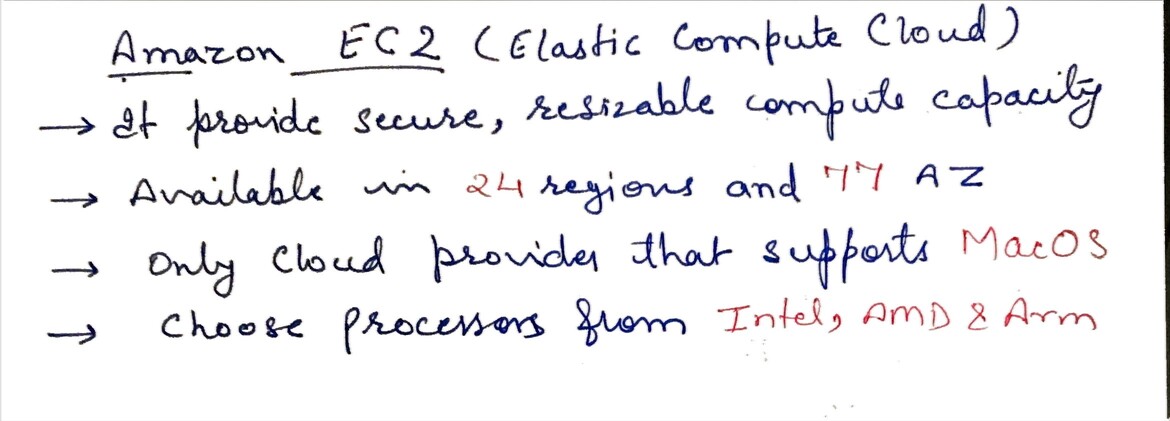 Amazon EC2 (Elastic Compute Cloud)
→ It provide secure, resizable compute capacity
→ Available in 24 regions and 77 AZ
→ Only Cloud provider that supports MacOS
→ Choose processors from Intel, AMD & Arm